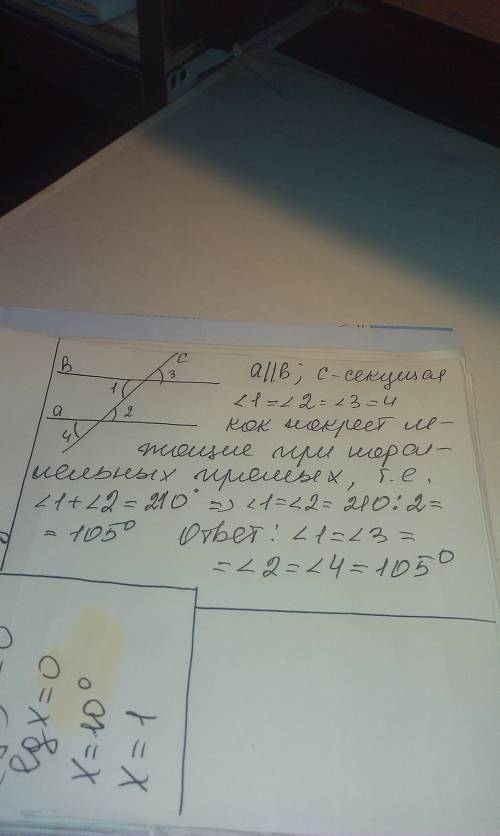 c
в
1
3
a
2
4
a||в; c-секущая
∠1=∠2=∠3=4
как накрест ле-
жащие при парал-
лельных прямых, т.е.
∠1+∠2=210° => ∠1=∠2=210:2=
=105° Ответ: ∠1=∠3=
=∠2=∠4=105°
lgx=0
x=10°
x=1